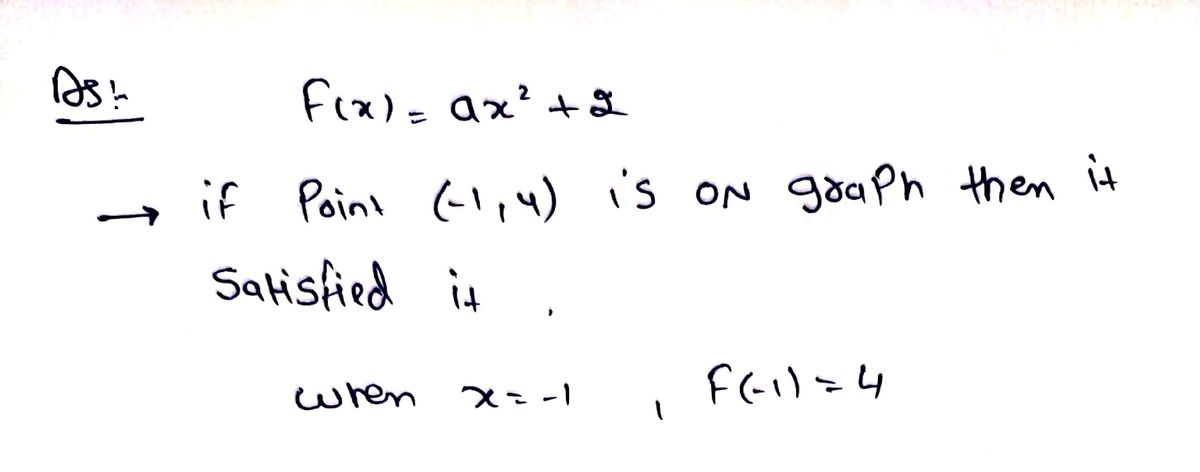 As:-
F(x) = ax² + 2
→ if Point (-1, 4) is ON graph then it
Satisfied it .
when x = -1 , F(-1) = 4